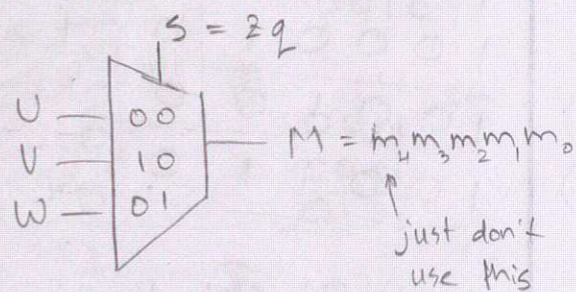 S = zq
U 00
V 10 M = m4m3m2m1m0
W 01
just don't
use this